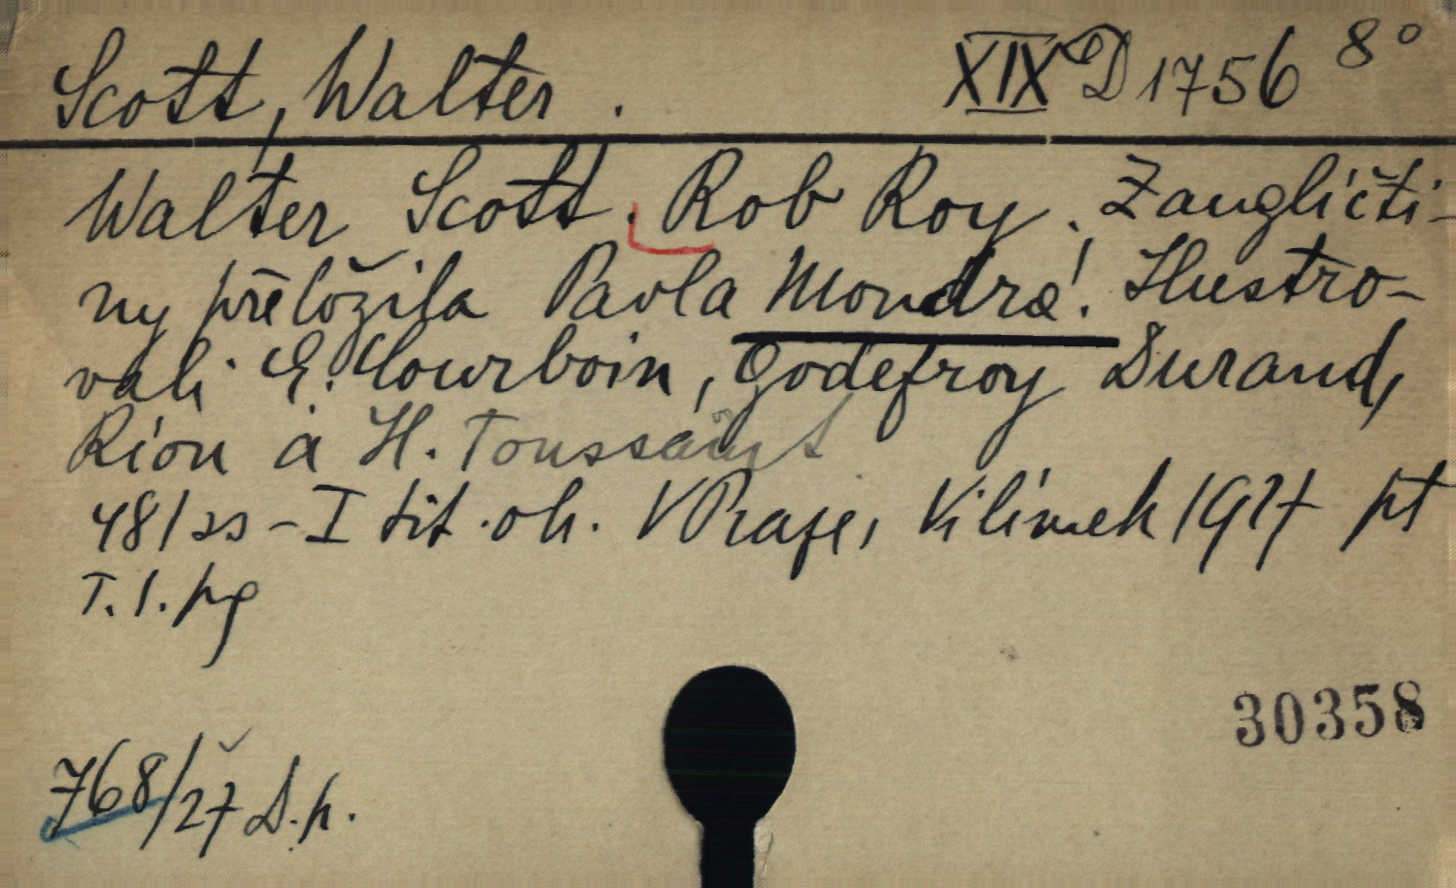 Scott, Walter. XIX D 1756 8°
Walter Scott. Rob Roy. Z angličti-
ny přeložila Pavla Moudrá. Ilustro-
vali E. Courboin, Godefroy Durand,
Riou a H. Toussaint
481 ss - I tit. ob. V Praze, Vilímek 1927 pt
T. 1. pg
768/27 D.p.
30358